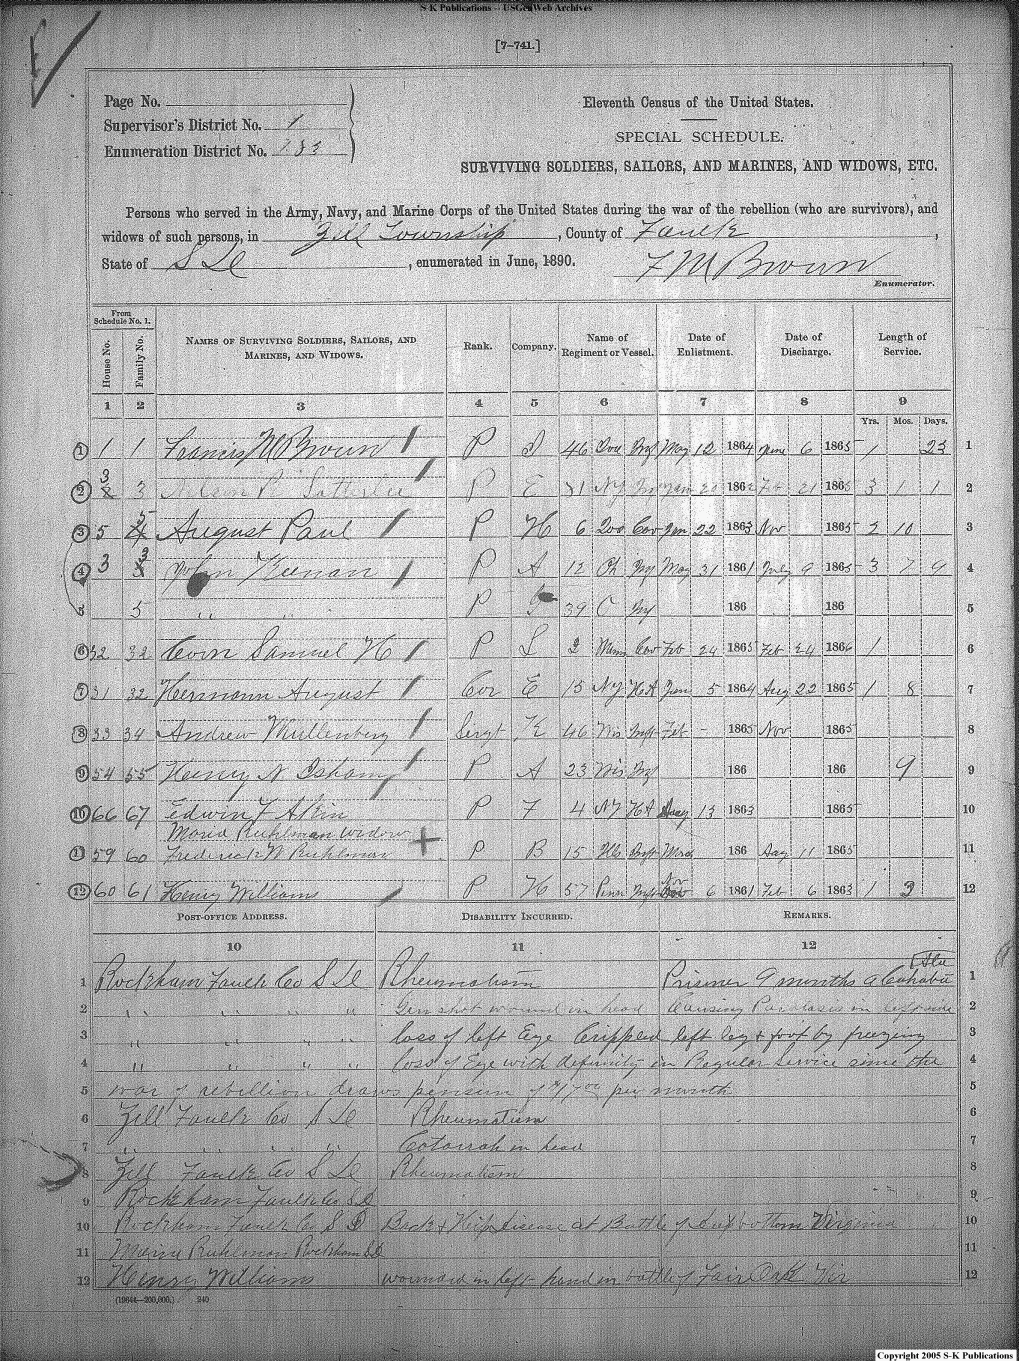 S-K Publications -- USGenWeb Archives
[7-741.]
Page No.
Supervisor's District No. 1
Enumeration District No. 183
Eleventh Census of the United States.
SPECIAL SCHEDULE.
SURVIVING SOLDIERS, SAILORS, AND MARINES, AND WIDOWS, ETC.
Persons who served in the Army, Navy, and Marine Corps of the United States during the war of the rebellion (who are survivors), and
widows of such persons, in Zell Township, County of Faulk,
State of S D, enumerated in June, 1890. F M Brown
Enumerator.
From Schedule No. 1.
House No. Family No. NAMES OF SURVIVING SOLDIERS, SAILORS, AND MARINES, AND WIDOWS. Rank. Company. Name of Regiment or Vessel. Date of Enlistment. Date of Discharge. Length of Service.
1 2 3 4 5 6 7 8 9
Yrs. Mos. Days.
1 1 1 Francis M Brown P 46 May 12 1864 June 6 1865 1 23 1
2 3 3 Nelson R P E NY 186 21 1865 3 1 1 2
3 5 5 August Paul P H 6 Cav Jan 22 1863 Nov 1865 2 10 3
4 3 3 John Keenan P A 12 May 31 1861 July 9 1865 3 7 9 4
5 5 " " P 39 186 186 5
6 32 32 Samuel H P L 2 Cav Feb 24 1865 Feb 24 1866 1 6
7 31 32 Hermann August Cor E 15 NY HA Jan 5 1864 Aug 22 1865 1 8 7
8 33 34 Andrew Mullenberg Sergt K 46 Wis Inft Feb - 1865 Nov 1865 8
9 54 55 Henry N Isham P A 23 Wis 186 186 9 9
10 66 67 Edwin F Akin P F 4 NY HA Aug 13 1863 1865 10
Maria Ruhlman widow
11 59 60 Frederick W Ruhlman P B 15 186 Aug 11 1865 11
12 60 61 Henry Williams P H 57 Penn Nov 6 1861 Feb 6 1863 1 3 12
POST-OFFICE ADDRESS. DISABILITY INCURRED. REMARKS.
10 11 12
1 Rockham Faulk Co S D Rheumatism Prisner 9 months a Cahaba 1
2 " " " " Gun shot wound in head Causing Paralasis in left side 2
3 " " " " loss of left Eye Crippled left leg & foot by freezing 3
4 " " " " loss of Eye with in Regular Service since the 4
5 war of rebellion draws pension of per month 5
6 Zell Faulk Co S D Rheumatism 6
7 " " " " Cotarrah in head 7
8 Zell Faulk Co S D Rheumatism 8
9 Rockham Faulk Co S D 9
10 Rockham Faulk Co S D Back & Hip disease at Battle of bottom Virginia 10
11 Ruhlman Rockham S D 11
12 Henry Williams wounded in left hand in battle of Fair Oak Vir 12
(19644-200,000.) 240
Copyright 2005 S-K Publications